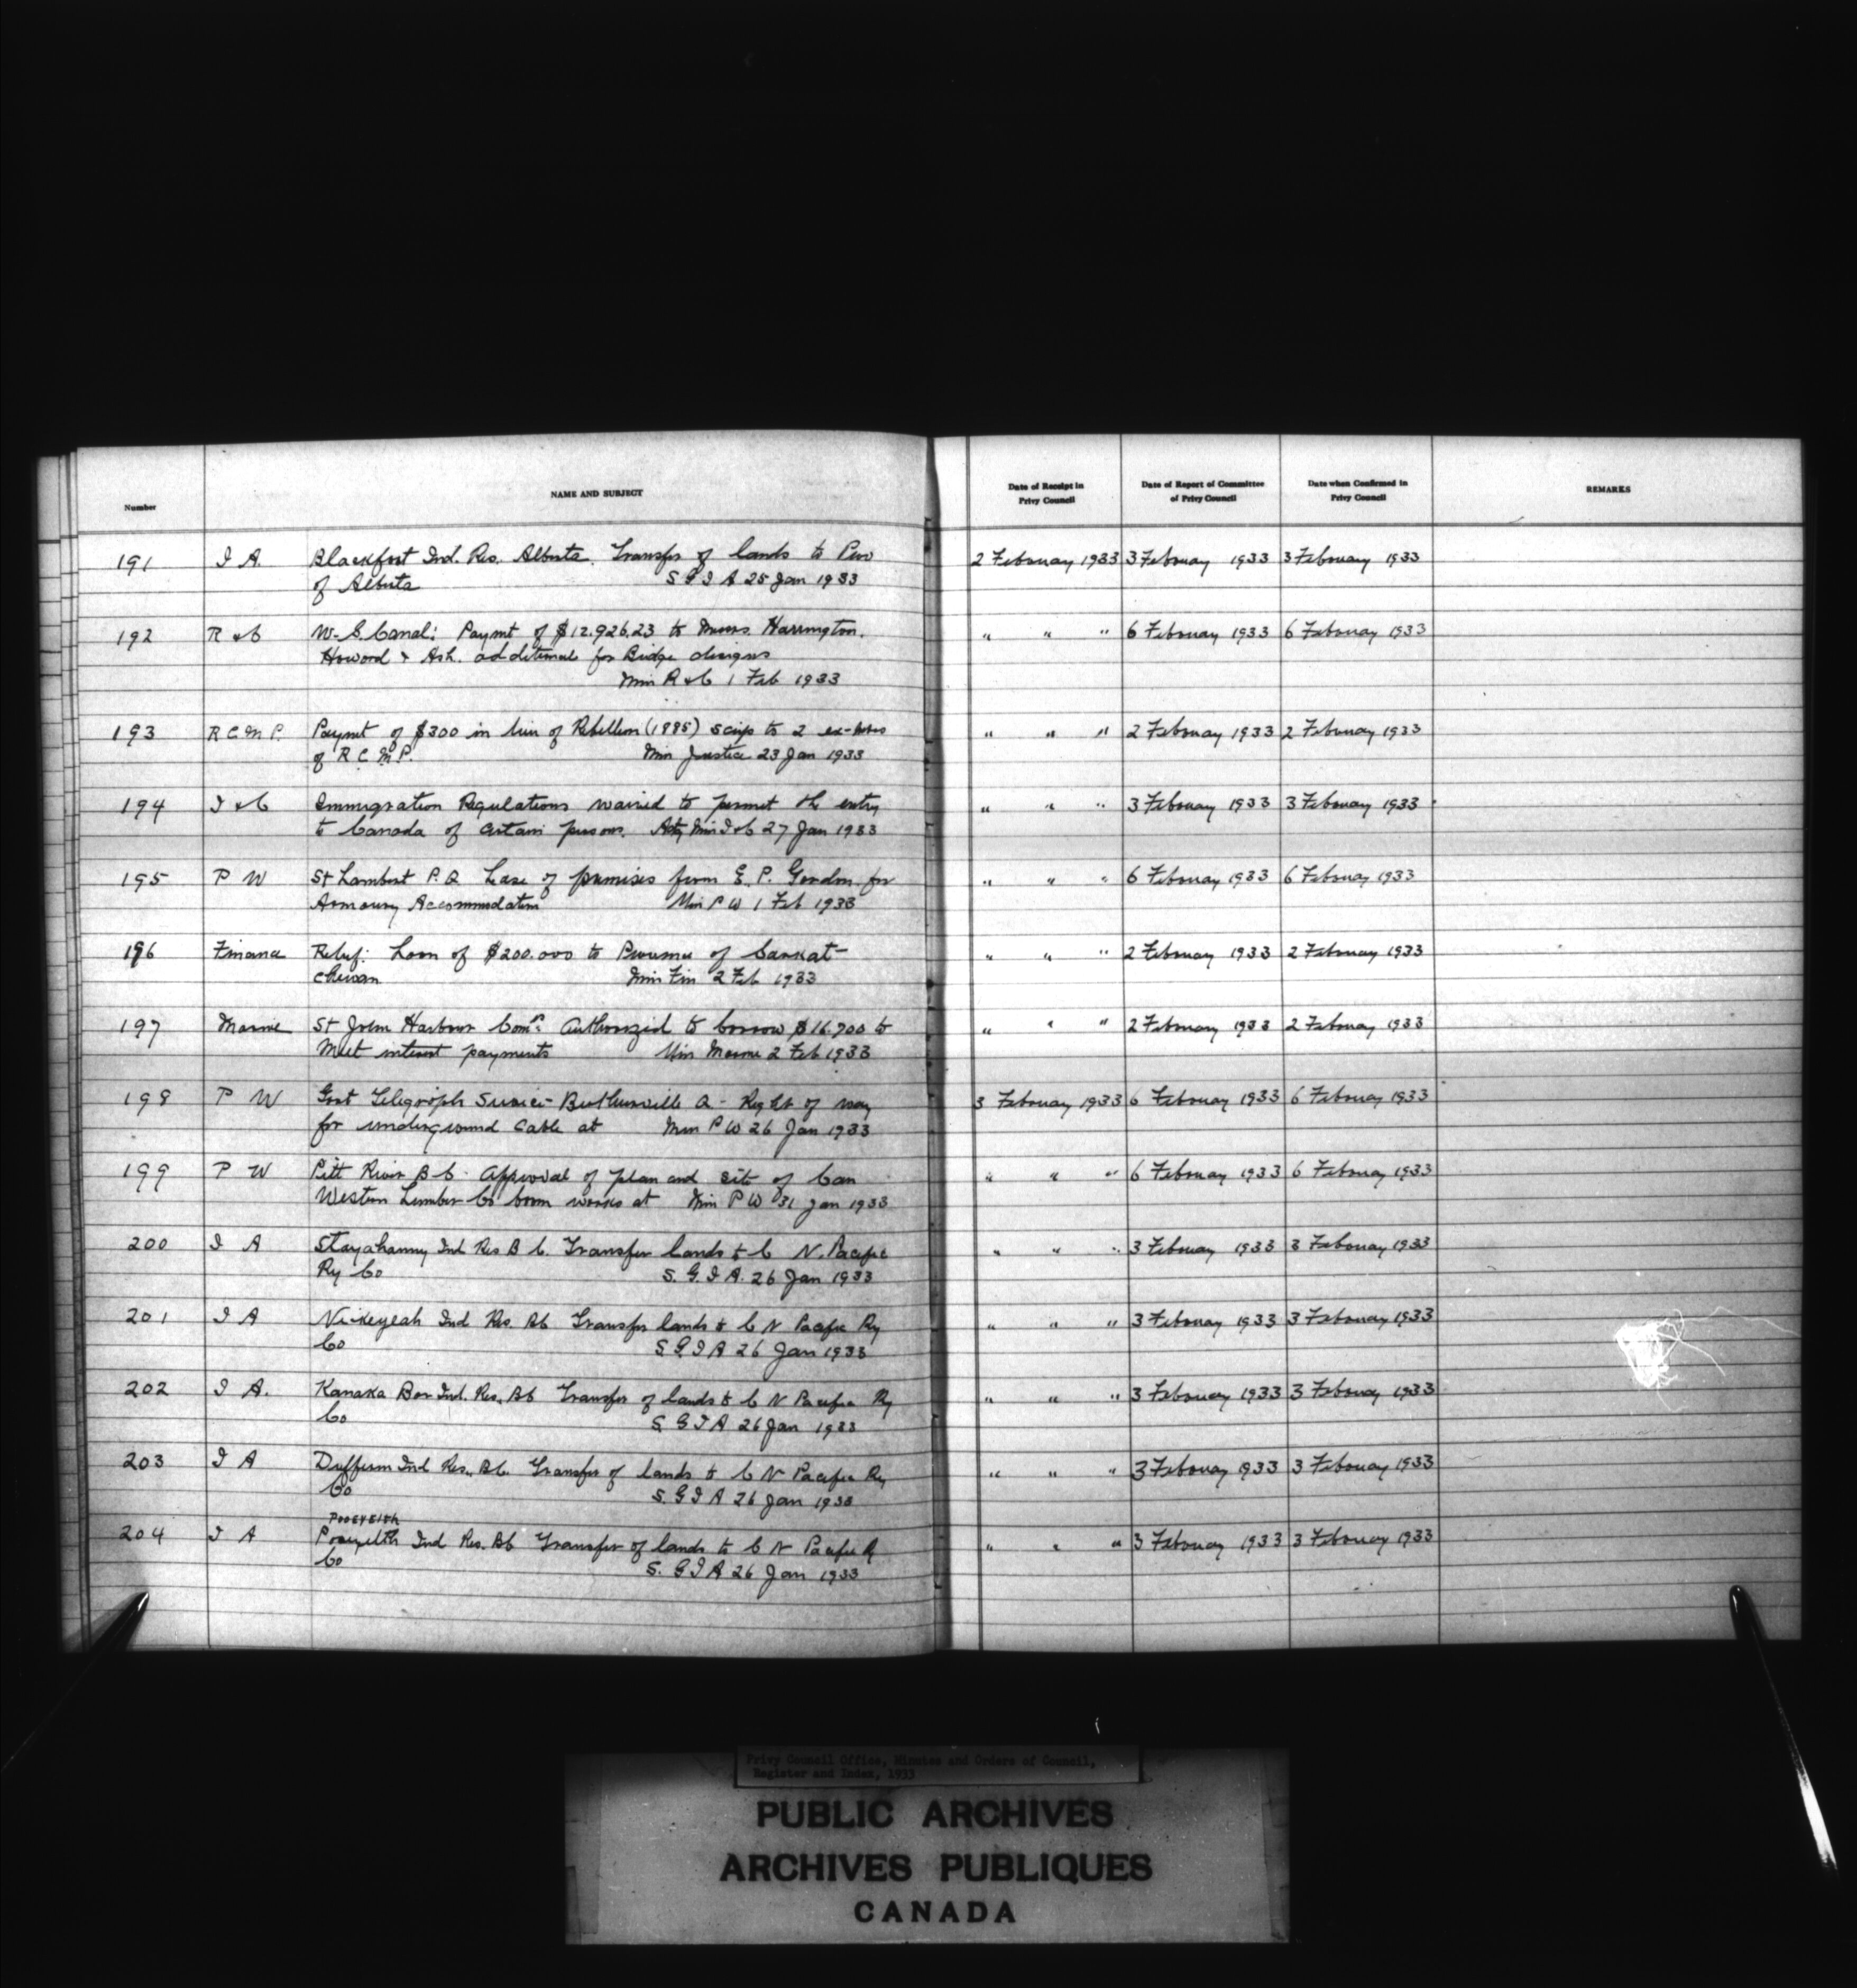 Number
NAME AND SUBJECT
Date of Receipt in Privy Council
Date of Report of Committee of Privy Council
Date when Confirmed in Privy Council
REMARKS
191 I A. Blackfoot Ind. Res. Alberta. Transfer of lands to Prov 2 February 1933 3 February 1933 3 February 1933
of Alberta S G I A 25 Jan 1933
192 R & C W. S. Canal: Paymt of $12.926.23 to Messrs. Harrington, " " " 6 February 1933 6 February 1933
Howard & Ash. additional for Bridge designs
Min R & C 1 Feb 1933
193 R C M P. Paymt of $300 in lieu of Rebellion (1885) scrip to 2 ex- " " " 2 February 1933 2 February 1933
of R C M P. Min Justice 23 Jan 1933
194 I & C Immigration Regulations waived to permit the entry " " " 3 February 1933 3 February 1933
to Canada of certain persons. Actg Min I & C 27 Jan 1933
195 P W St Lambert P. Q Lease of premises from E. P. Gordon for " " " 6 February 1933 6 February 1933
Armoury Accommodation Min P W 1 Feb 1933
196 Finance Relief: Loan of $200.000 to Province of Saskat- " " " 2 February 1933 2 February 1933
chewan Min Fin 2 Feb 1933
197 Marine St John Harbour Comrs: Authorized to borrow $16.700 to " " " 2 February 1933 2 February 1933
meet interest payments Min Marine 2 Feb 1933
198 P W Govt Telegraph Service - Q - Right of way 3 February 1933 6 February 1933 6 February 1933
for underground cable at Min P W 26 Jan 1933
199 P W Pitt River B C - Approval of plan and site of Can " " " 6 February 1933 6 February 1933
Western Lumber Co boom works at Min P W 31 Jan 1933
200 I A Stayahanny Ind Res B C. Transfer lands to C N. Pacific " " " 3 February 1933 3 February 1933
Ry Co S. G. I A. 26 Jan 1933
201 I A Nickeyeah Ind Res. BC Transfer lands to C N Pacific Ry " " " 3 February 1933 3 February 1933
Co S G I A 26 Jan 1933
202 I A. Kanaka Bar Ind. Res. BC Transfer of lands to C N Pacific Ry " " " 3 February 1933 3 February 1933
Co S G I A 26 Jan 1933
203 I A Dufferin Ind Res., BC. Transfer of lands to C N Pacific Ry " " " 3 February 1933 3 February 1933
Co S. G I A 26 Jan 1933
Pooeyelth
204 I A Pooeyelth Ind Res. BC Transfer of lands to C N Pacific R " " " 3 February 1933 3 February 1933
Co S. G I A 26 Jan 1933
Privy Council Office, Minutes and Orders of Council,
Register and Index, 1933
PUBLIC ARCHIVES
ARCHIVES PUBLIQUES
CANADA